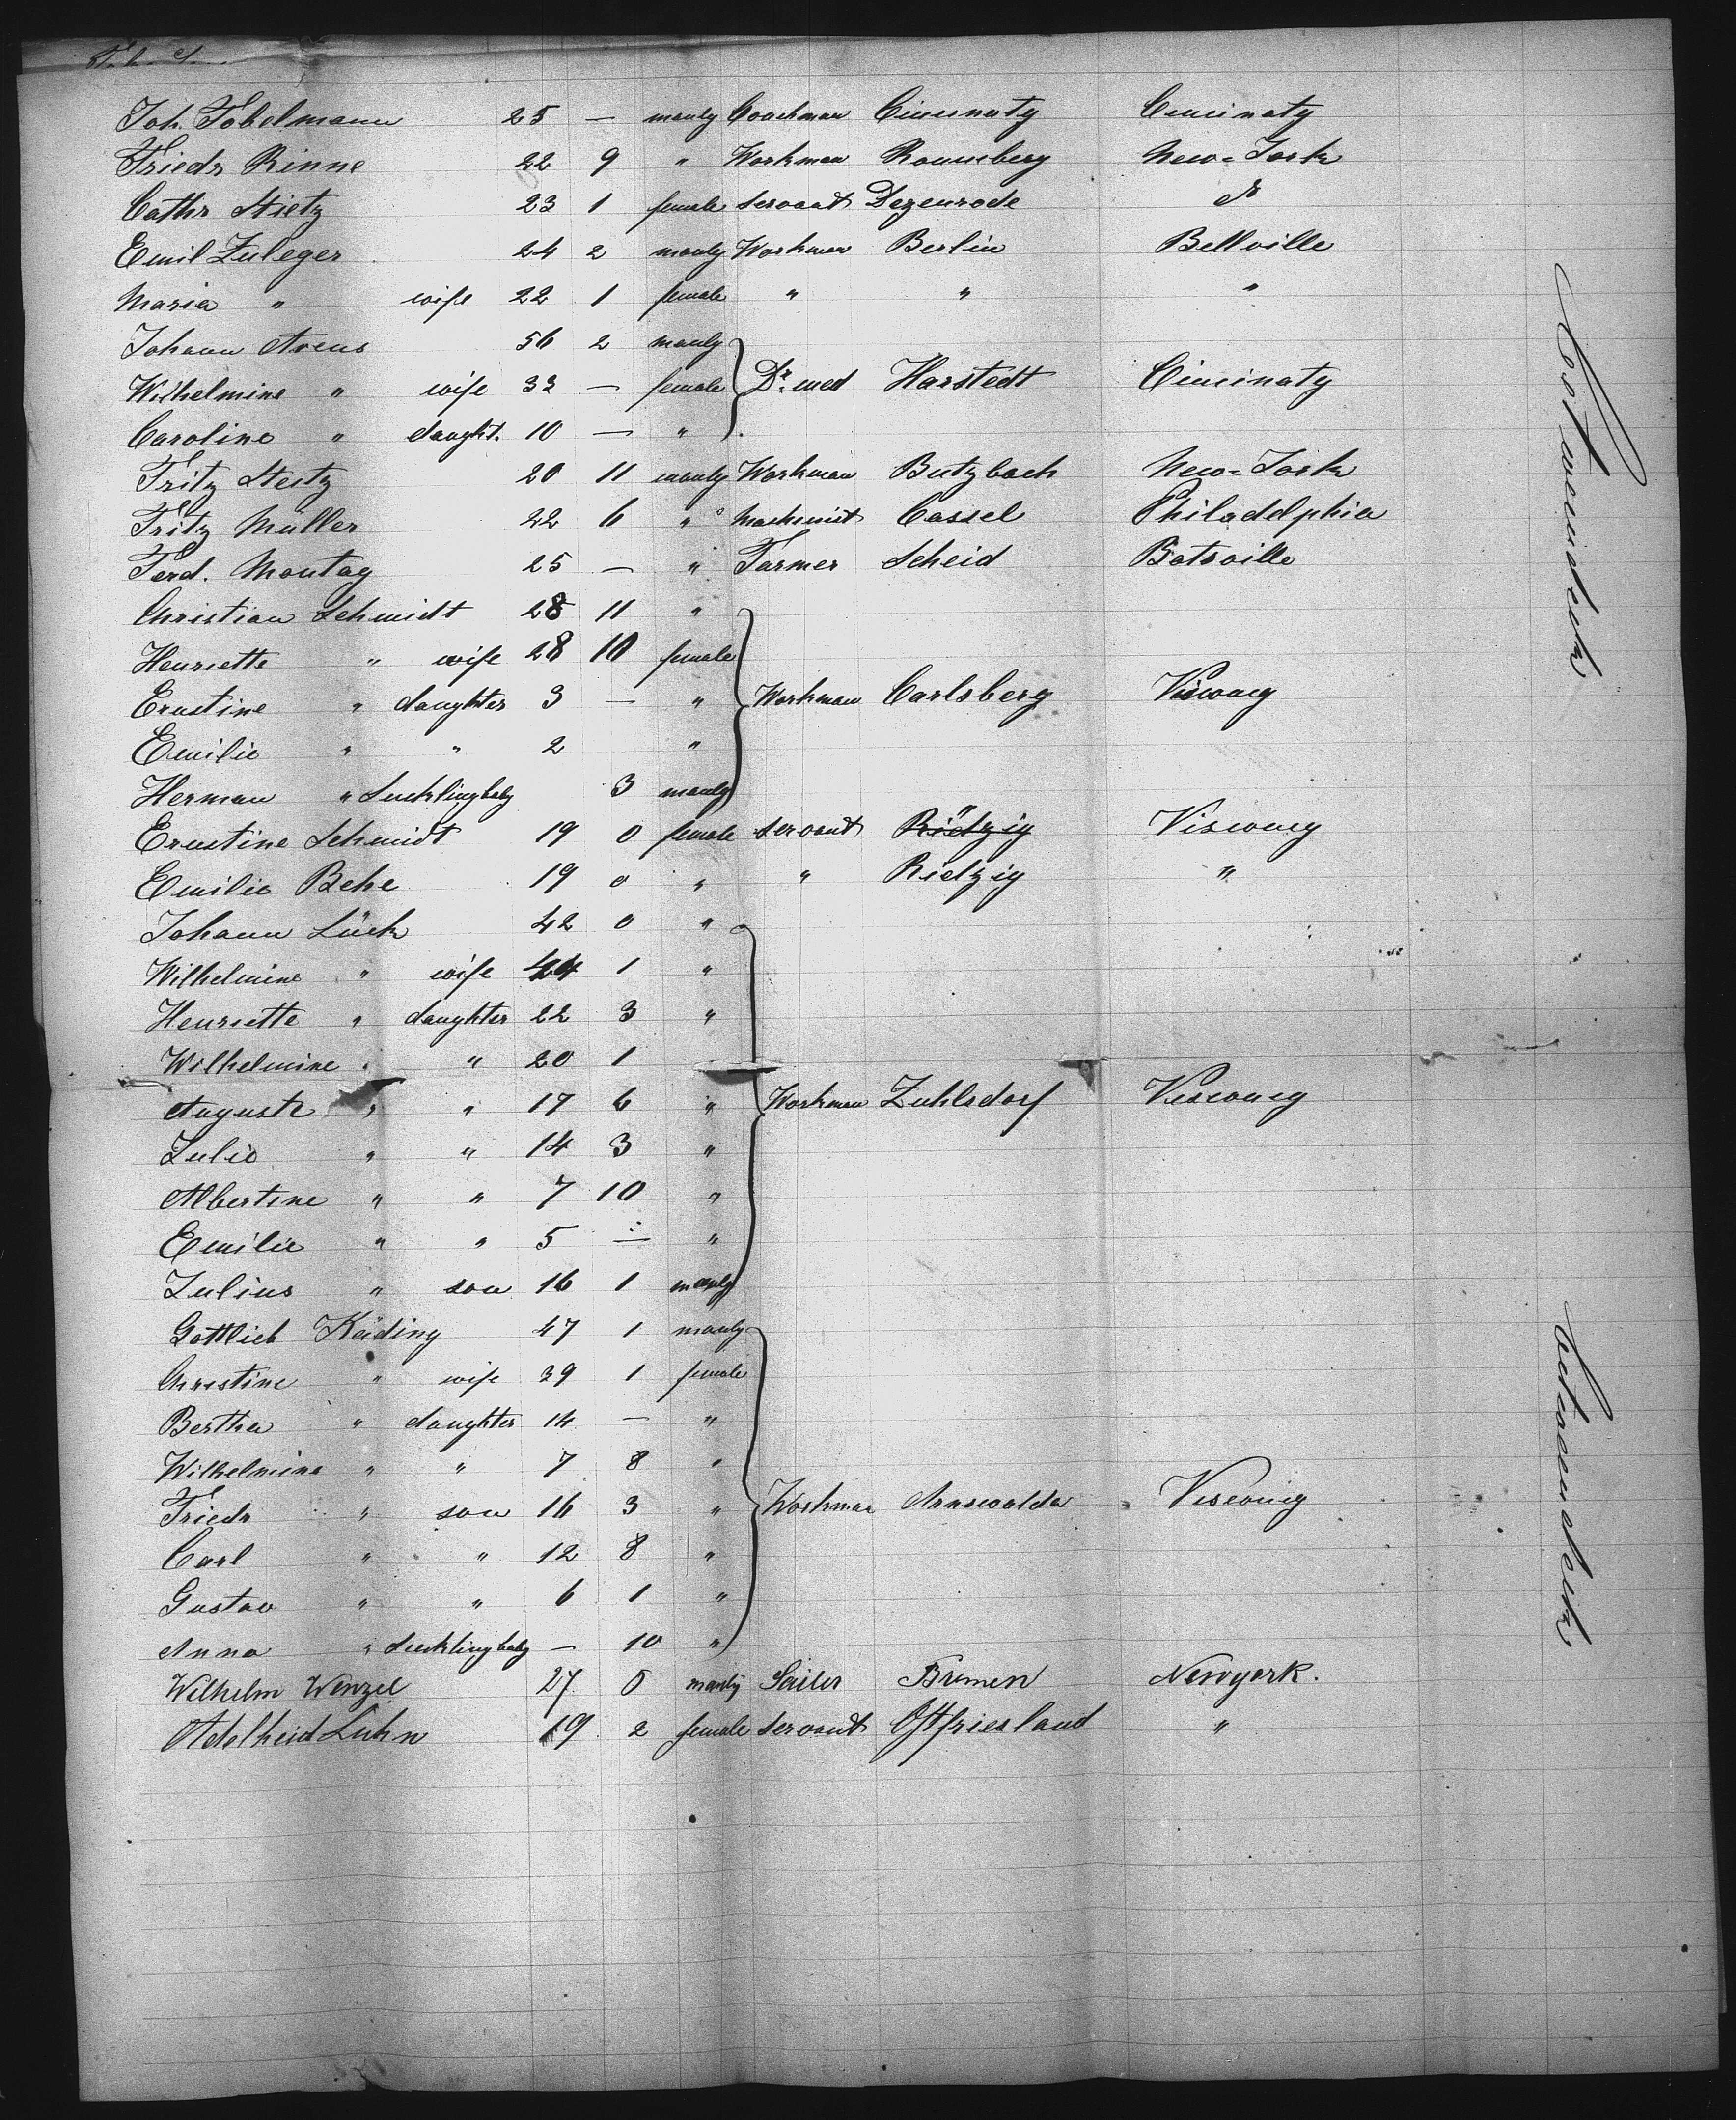 Joh. Fobelmann 25 — manly Coachman Cincinnaty Cincinaty
Friedr Rinne 22 9 " Workman Ronneberg New-York
Cathr Stietz 23 1 female servant Dezenrode do
Emil Zuleger 24 2 manly Workman Berlin Bellville
Maria " wife 22 1 female " " "
Johann Arens 56 2 manly
Wilhelmine " wife 33 — female Dr. med Harstedt Cincinaty
Caroline " daught. 10 — "
Fritz Steitz 20 11 manly Workman Butzbach New-York
Fritz Müller 22 6 " Mashinist Cassel Philadelphia
Ferd. Montag 25 — " Farmer Scheid Batsville
Christian Schmidt 28 11 "
Henriette " wife 28 10 female
Ernstine " daughter 3 — " Workman Carlsberg Viscong
Emilie " " 2 "
Herman " Sucklingbaby 3 manly
Ernstine Schmidt 19 0 female servant Rietzig Viscong
Emilie Behe 19 0 " " Rietzig "
Johann Lück 42 0 "
Wilhelmine " wife 44 1 "
Henriette " daughter 22 3 "
Wilhelmine " " 20 1
Auguste " " 17 6 " Workman Zuhlsdorf Viscong
Julie " " 14 3 "
Albertine " " 7 10 "
Emilie " " 5 — "
Julius " son 16 1 manly
Gottlieb Käding 47 1 manly
Christine " wife 39 1 female
Bertha " daughter 14 — "
Wilhelmine " " 7 8 "
Friedr " son 16 3 " Workman Arnswalde Viscong
Carl " " 12 8 "
Gustav " " 6 1 "
Anna " Sucklingbaby — 10 "
Wilhelm Wenzel 27 0 manly Sailer Bremen Newyork.
Adelheid Luhn 19 2 female servant Ostfriesland "